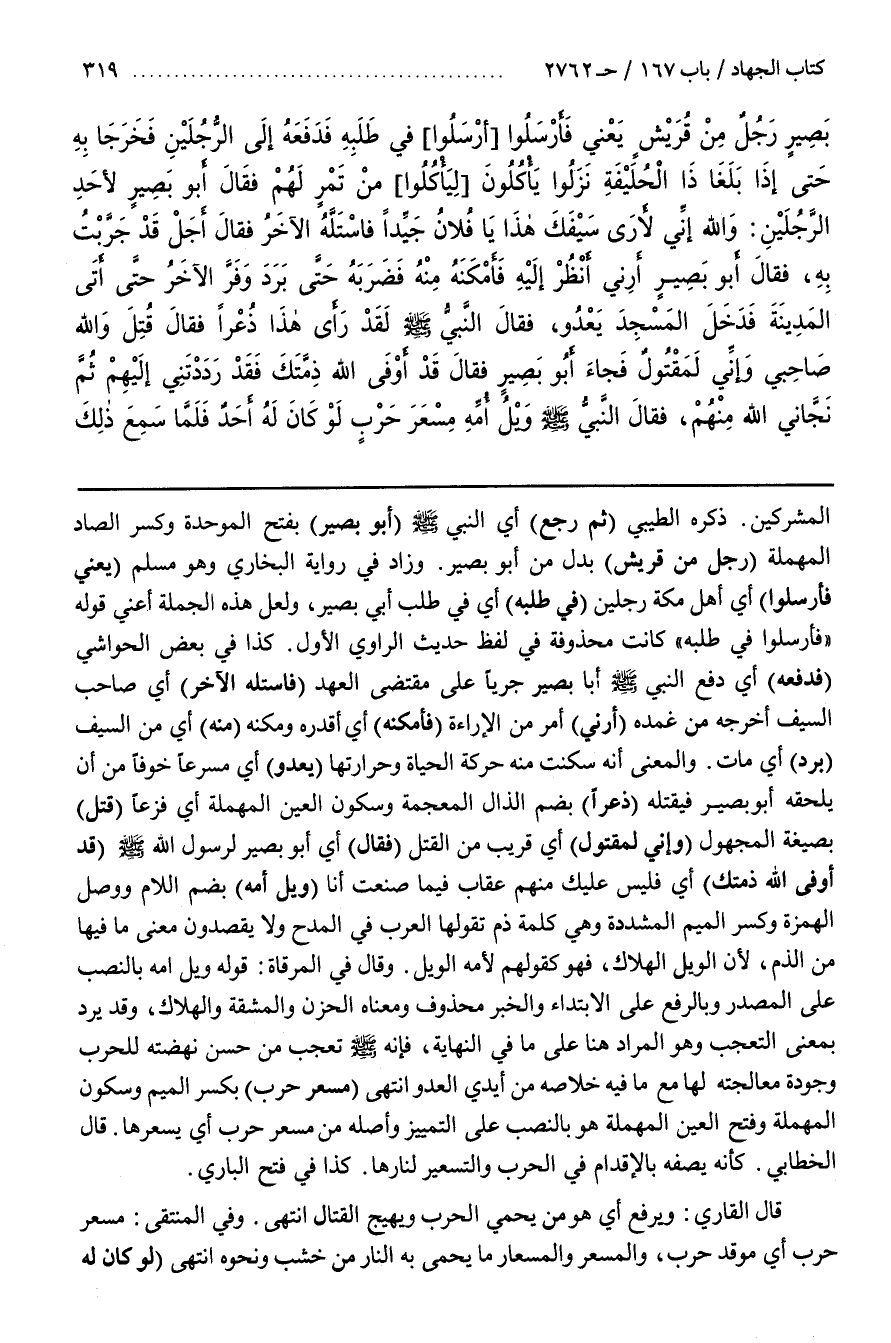 كتاب الجهاد / باب ١٦٧ / حـ ٢٧٦٢ ........................................ ٣١٩
بَصِيرٍ رَجُلٌ مِنْ قُرَيْشٍ يَعْني فَأَرْسَلُوا [أرْسَلُوا] في طَلَبِهِ فَدَفَعَهُ إلَى الرَّجُلَيْنِ فَخَرَجَا بِهِ
حَتى إذَا بَلَغَا ذَا الْحُلَيْفَةِ نَزَلُوا يَأْكُلُونَ [لِيَأْكُلُوا] منْ تَمْرٍ لَهُمْ فقَالَ أَبو بَصِيرٍ لأحَدِ
الرَّجُلَيْنِ: وَالله إنِّي لأَرَى سَيْفَكَ هٰذَا يَا فُلانُ جَيِّداً فاسْتَلَّهُ الآخَرُ فقالَ أَجَلْ قَدْ جَرَّبْتُ
بِهِ، فقالَ أَبو بَصِيـرٍ أَرِني أَنْظُرْ إلَيْهِ فَأَمْكَنَهُ مِنْهُ فَضَرَبَهُ حَتَّى بَرَدَ وَفَرَّ الآخَرُ حتَّى أَتَى
المَدِينَةَ فَدَخَلَ المَسْجِدَ يَعْدُو، فقالَ النَّبيُّ ﷺ لَقَدْ رَأَى هٰذَا ذُعْراً فقالَ قُتِلَ وَالله
صَاحِبي وَإنِّي لَمَقْتُولٌ فَجاءَ أَبُو بَصِيرٍ فقالَ قَدْ أَوْفَى الله ذِمَّتَكَ فَقَدْ رَدَدْتَنِي إلَيْهِمْ ثُمَّ
نَجَّاني الله مِنْهُمْ، فقالَ النَّبيُّ ﷺ وَيْلُ أُمِّهِ مِسْعَرَ حَرْبٍ لَوْ كَانَ لَهُ أَحَدٌ فَلَمَّا سَمِعَ ذٰلِكَ
المشركين. ذكره الطيبي (ثم رجع) أي النبي ﷺ (أبو بصير) بفتح الموحدة وكسر الصاد
المهملة (رجل من قريش) بدل من أبو بصير. وزاد في رواية البخاري وهو مسلم (يعني
فأرسلوا) أي أهل مكة رجلين (في طلبه) أي في طلب أبي بصير، ولعل هذه الجملة أعني قوله
«فأرسلوا في طلبه» كانت محذوفة في لفظ حديث الراوي الأول. كذا في بعض الحواشي
(فدفعه) أي دفع النبي ﷺ أبا بصير جرياً على مقتضى العهد (فاستله الآخر) أي صاحب
السيف أخرجه من غمده (أرني) أمر من الإراءة (فأمكنه) أي أقدره ومكنه (منه) أي من السيف
(برد) أي مات. والمعنى أنه سكنت منه حركة الحياة وحرارتها (يعدو) أي مسرعاً خوفاً من أن
يلحقه أبوبصيـر فيقتله (ذعراً) بضم الذال المعجمة وسكون العين المهملة أي فزعاً (قتل)
بصيغة المجهول (وإني لمقتول) أي قريب من القتل (فقال) أي أبو بصير لرسول الله ﷺ (قد
أوفى الله ذمتك) أي فليس عليك منهم عقاب فيما صنعت أنا (ويل أمه) بضم اللام ووصل
الهمزة وكسر الميم المشددة وهي كلمة ذم تقولها العرب في المدح ولا يقصدون معنى ما فيها
من الذم، لأن الويل الهلاك، فهو كقولهم لأمه الويل. وقال في المرقاة: قوله ويل امه بالنصب
على المصدر وبالرفع على الابتداء والخبر محذوف ومعناه الحزن والمشقة والهلاك، وقد يرد
بمعنى التعجب وهو المراد هنا على ما في النهاية، فإنه ﷺ تعجب من حسن نهضته للحرب
وجودة معالجته لها مع ما فيه خلاصه من أيدي العدو انتهى (مسعر حرب) بكسر الميم وسكون
المهملة وفتح العين المهملة هو بالنصب على التمييز وأصله من مسعر حرب أي يسعرها. قال
الخطابي. كأنه يصفه بالإقدام في الحرب والتسعير لنارها. كذا في فتح الباري.
قال القاري: ويرفع أي هو من يحمي الحرب ويهيج القتال انتهى. وفي المنتقى: مسعر
حرب أي موقد حرب، والمسعر والمسعار ما يحمى به النار من خشب ونحوه انتهى (لو كان له